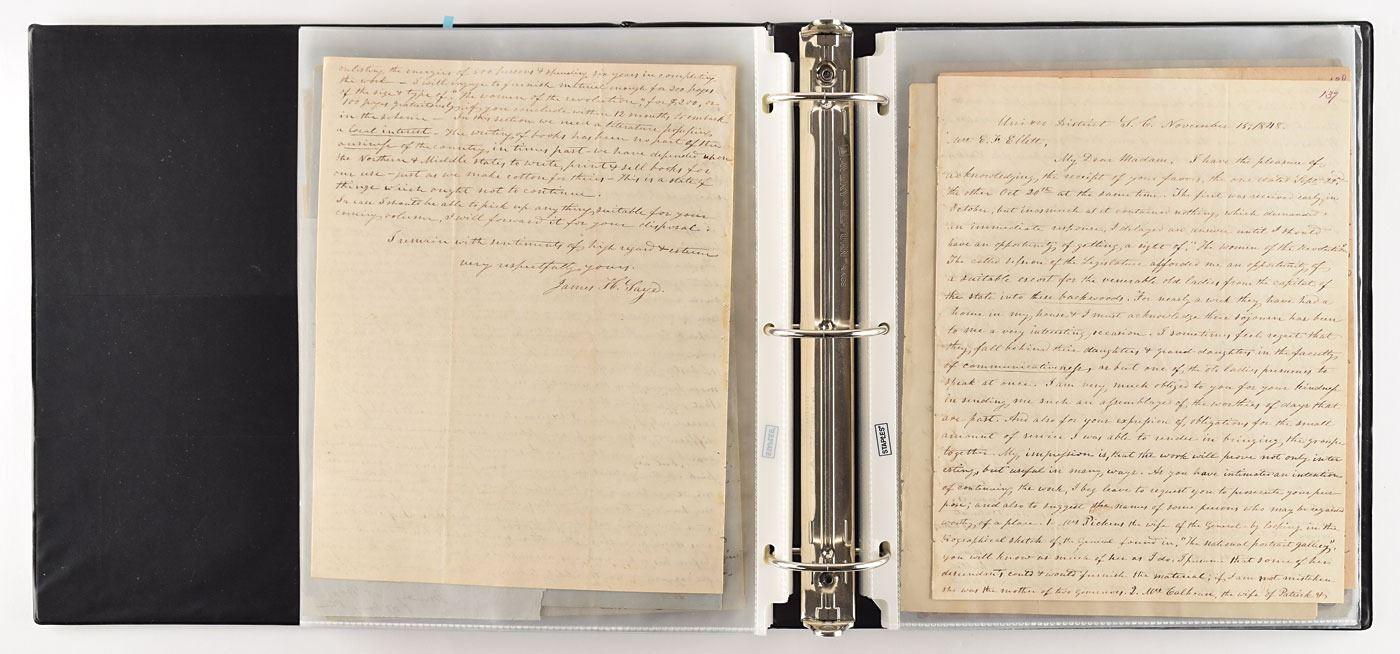 enlisting the energies of 500 persons & spending six years in completing
the work — I will engage to furnish material enough for 300 pages
of the size & type of "The women of the revolution," for $250, or
100 pages gratuitously, if you conclude within 12 months to embark
in the scheme — In this section we need a literature possessing
a local interest — The writing of books has been no part of the
business of the country, in times past — we have depended upon
the Northern & Middle states, to write, print & sell books for
our use — just as we make cotton for theirs — This is a state of
things which ought not to continue.
In case I should be able to pick up any thing suitable for your
coming volume, I will forward it for your disposal.
I remain with sentiments of high regard & esteem
very respectfully yours.
James H. Saye.
139
Union District S. C. November 15, 1848.
Mrs E. F. Ellett,
My Dear Madam, I have the pleasure of
acknowledging the receipt of your favors, the one dated Sept.
the other Oct 20th at the same time. The first was received early in
October, but inasmuch as it contained nothing, which demanded
an immediate response, I delayed an answer until I should
have an opportunity of getting a sight of, "The women of the Revolution,
The called session of the Legislature afforded me an opportunity of
a suitable escort for the venerable old ladies from the capital of
the state into these backwoods. For nearly a week they have had a
home in my house & I must acknowledge their sojourn has been
to me a very interesting occasion. I sometimes feel regret that
they fall behind their daughters & grand-daughters in the faculty
of communicativeness, as but one of the old ladies presumes to
speak at once. I am very much obliged to you for your kindness
in sending me such an assemblage of the worthies of days that
are past. And also for your expression of obligations for the small
amount of service I was able to render in bringing the groupe
together. My impression is, that the work will prove not only inter
esting, but useful in many ways. As you have intimated an intention
of continuing the work, I beg leave to request you to prosecute your pur
pose; and also to suggest the names of some persons who may be regarded
worthy of a place. 1. Mrs Pickens the wife of the General — by looking in the
biographical sketch of the General found in, "The national portrait gallery",
you will know as much of her as I do. I presume that some of her
descendants could & would furnish the material; if I am not mistaken
she was the mother of two Governors. 2. Mrs Calhoun, the wife of Patrick &
STAPLES
STAPLES